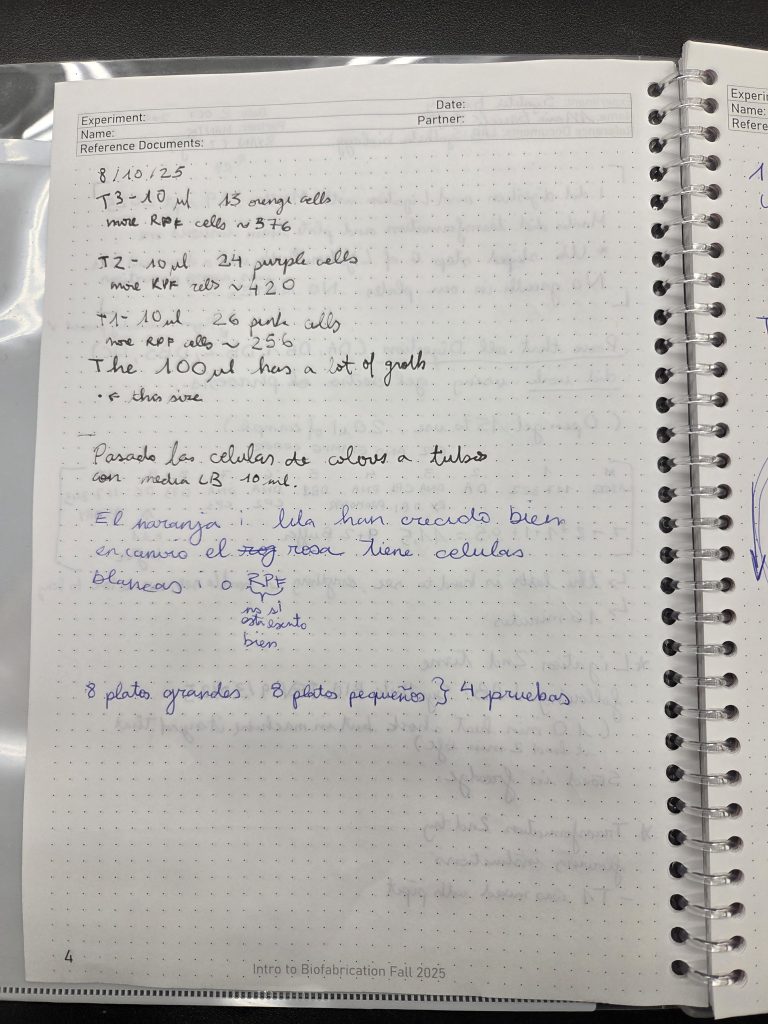 Experiment:
Date:
Name:
Partner:
Reference Documents:
8/10/25
T3-10 ul 13 orange cells
more RPF cells ~376
T2-10 ul 24 purple cells
more RPF cells ~420
T1-10 ul 26 pink cells
more RPF cells ~ 256
The 100 ul has a lot of groth
this size
Pasado las celulas de colours a tubos
con media LB 10 ml.
El naranja i lila han crecido bien
en canvio el rosa tiene celulas
blancas i o RPF
no sí
está escrito
bien
8 platos grandes 8 platos pequeños } 4 pruebas
4
Intro to Biofabrication Fall 2025
Experim
Name:
Refere